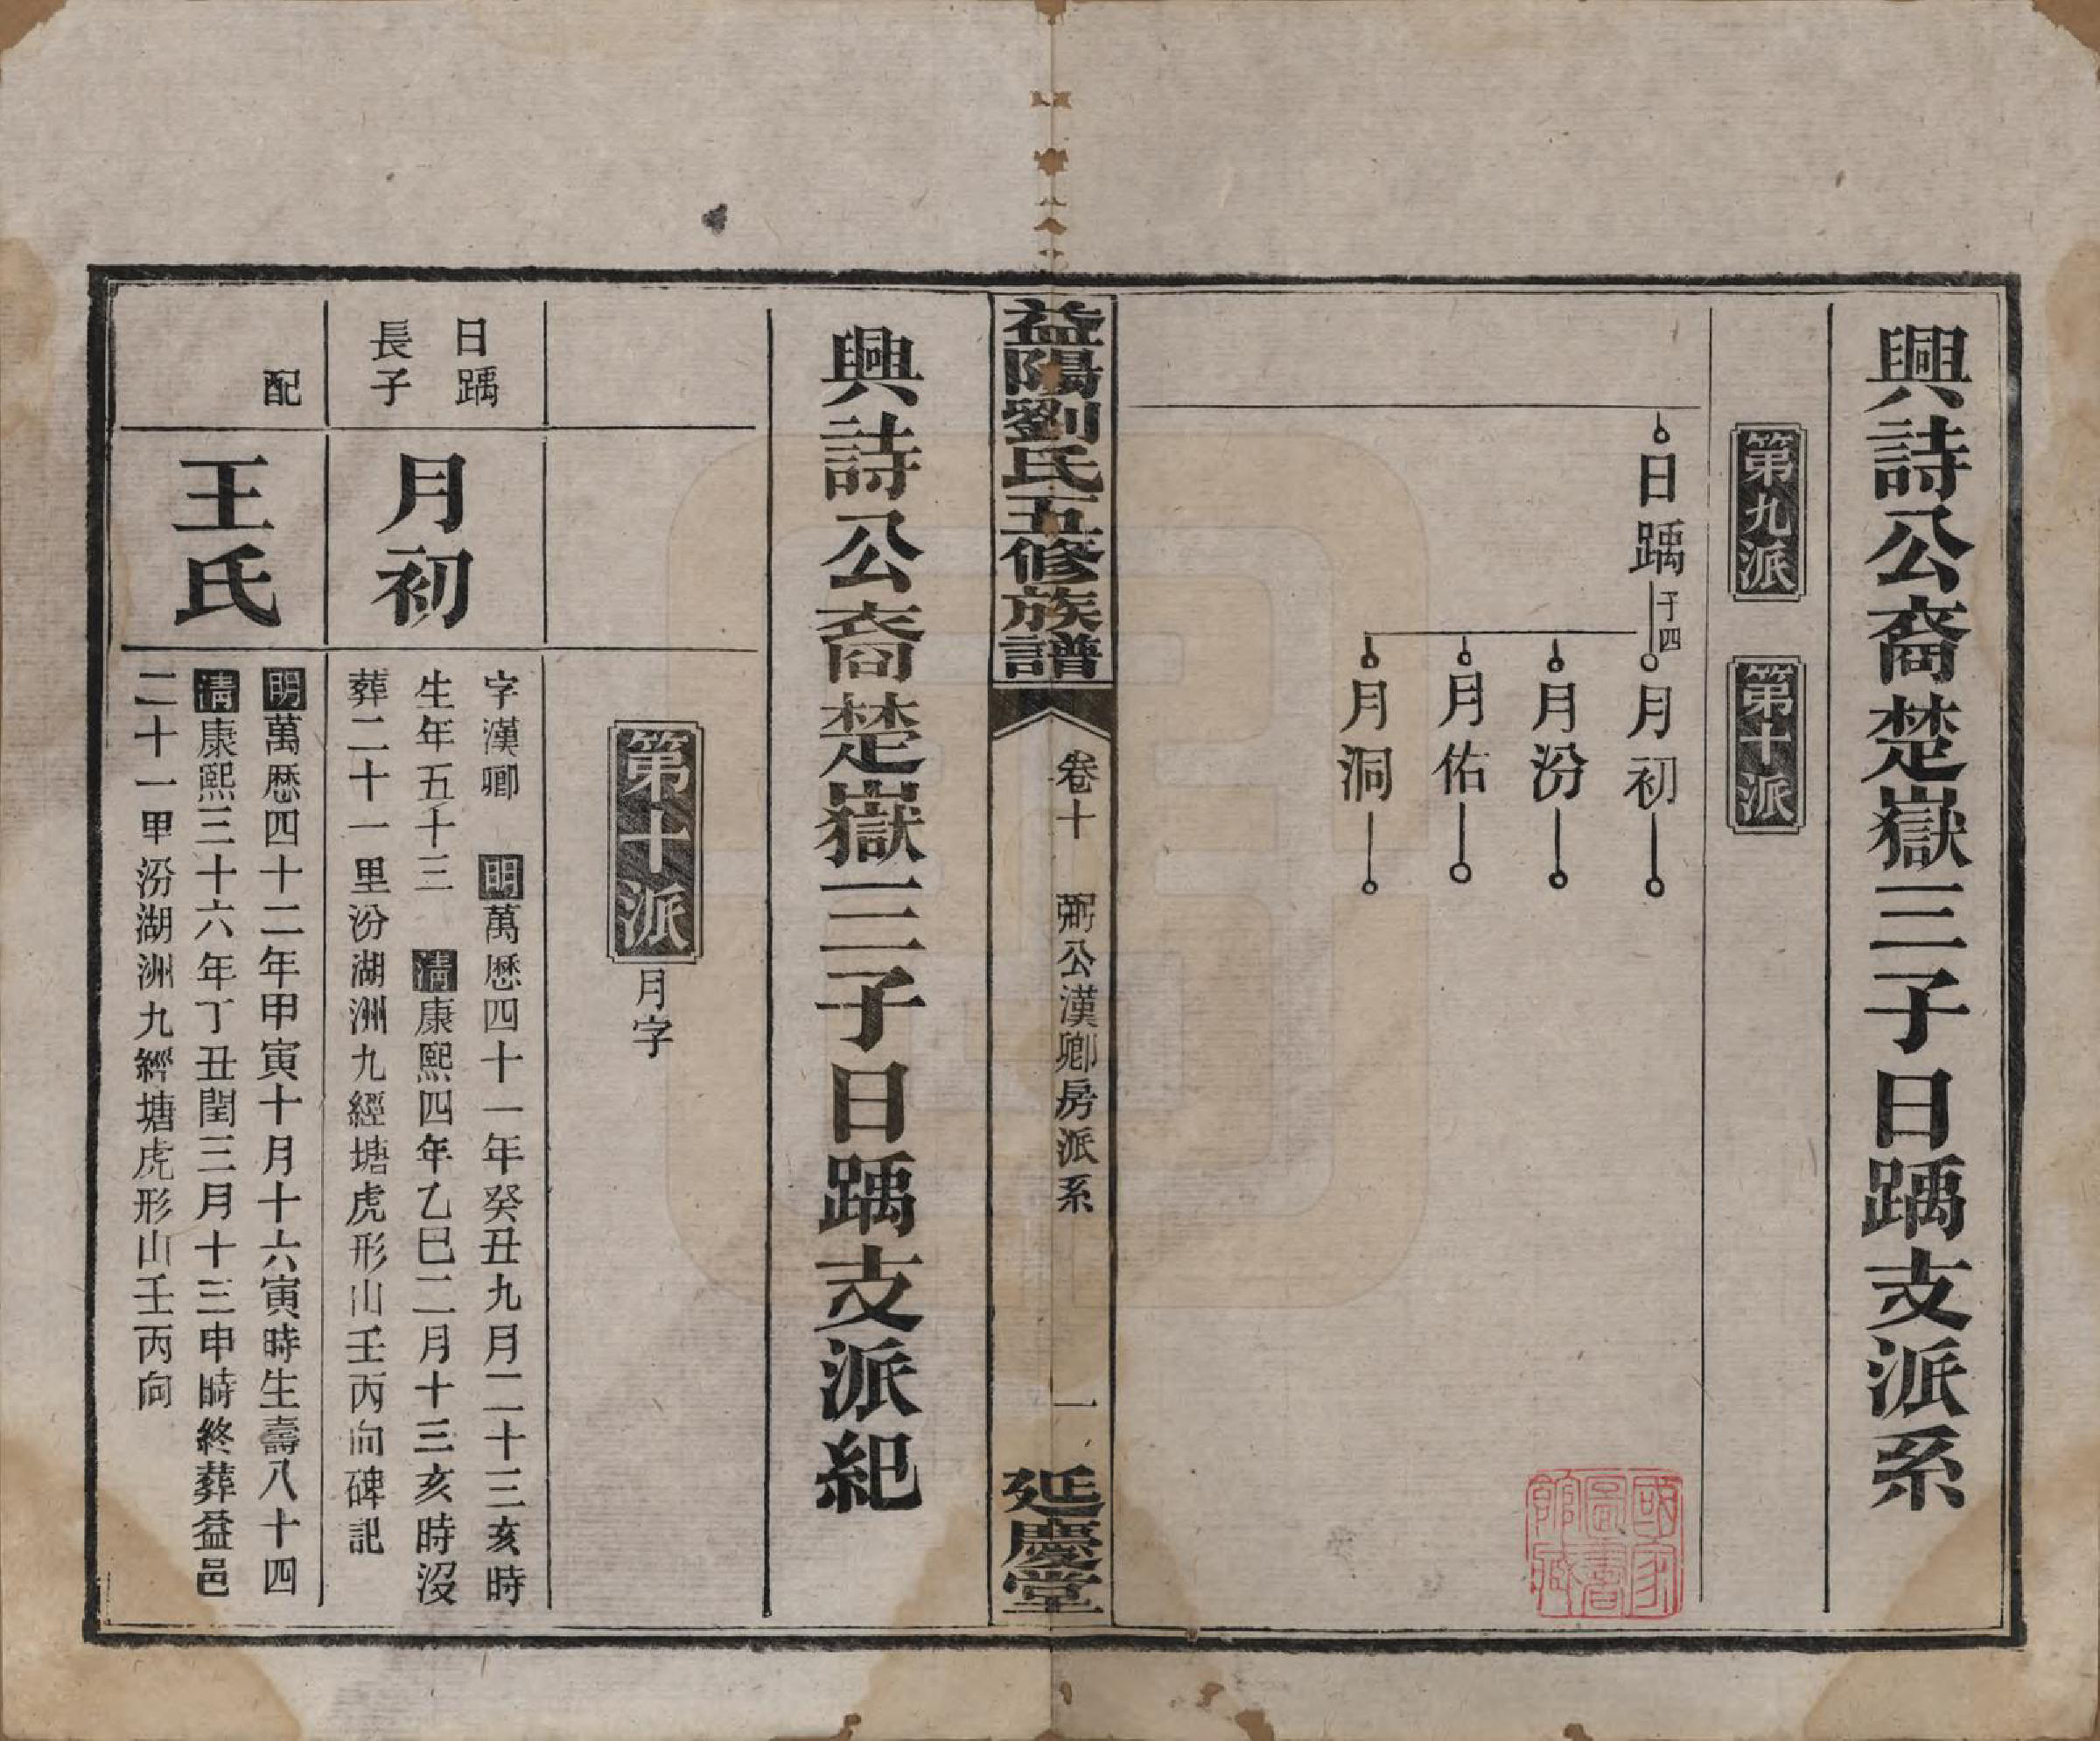 興詩公裔楚嶽三子日踽支派系
第九派
第十派
日踽
子四
月初
月汾
月佑
月洞
國家圖書館藏
益陽劉氏五修族譜
卷十
弼公漢卿房派系
一
延慶堂
興詩公裔楚嶽三子日踽支派紀
第十派
月字
日踽
長子
月初
字漢卿 明萬歷四十一年癸丑九月二十三亥時
生年五十三 清康熙四年乙巳二月十三亥時沒
葬二十一里汾湖洲九經塘虎形山壬丙向碑記
配
王氏
明萬歷四十二年甲寅十月十六寅時生壽八十四
清康熙三十六年丁丑閏三月十三申時終葬益邑
二十一里汾湖洲九經塘虎形山壬丙向